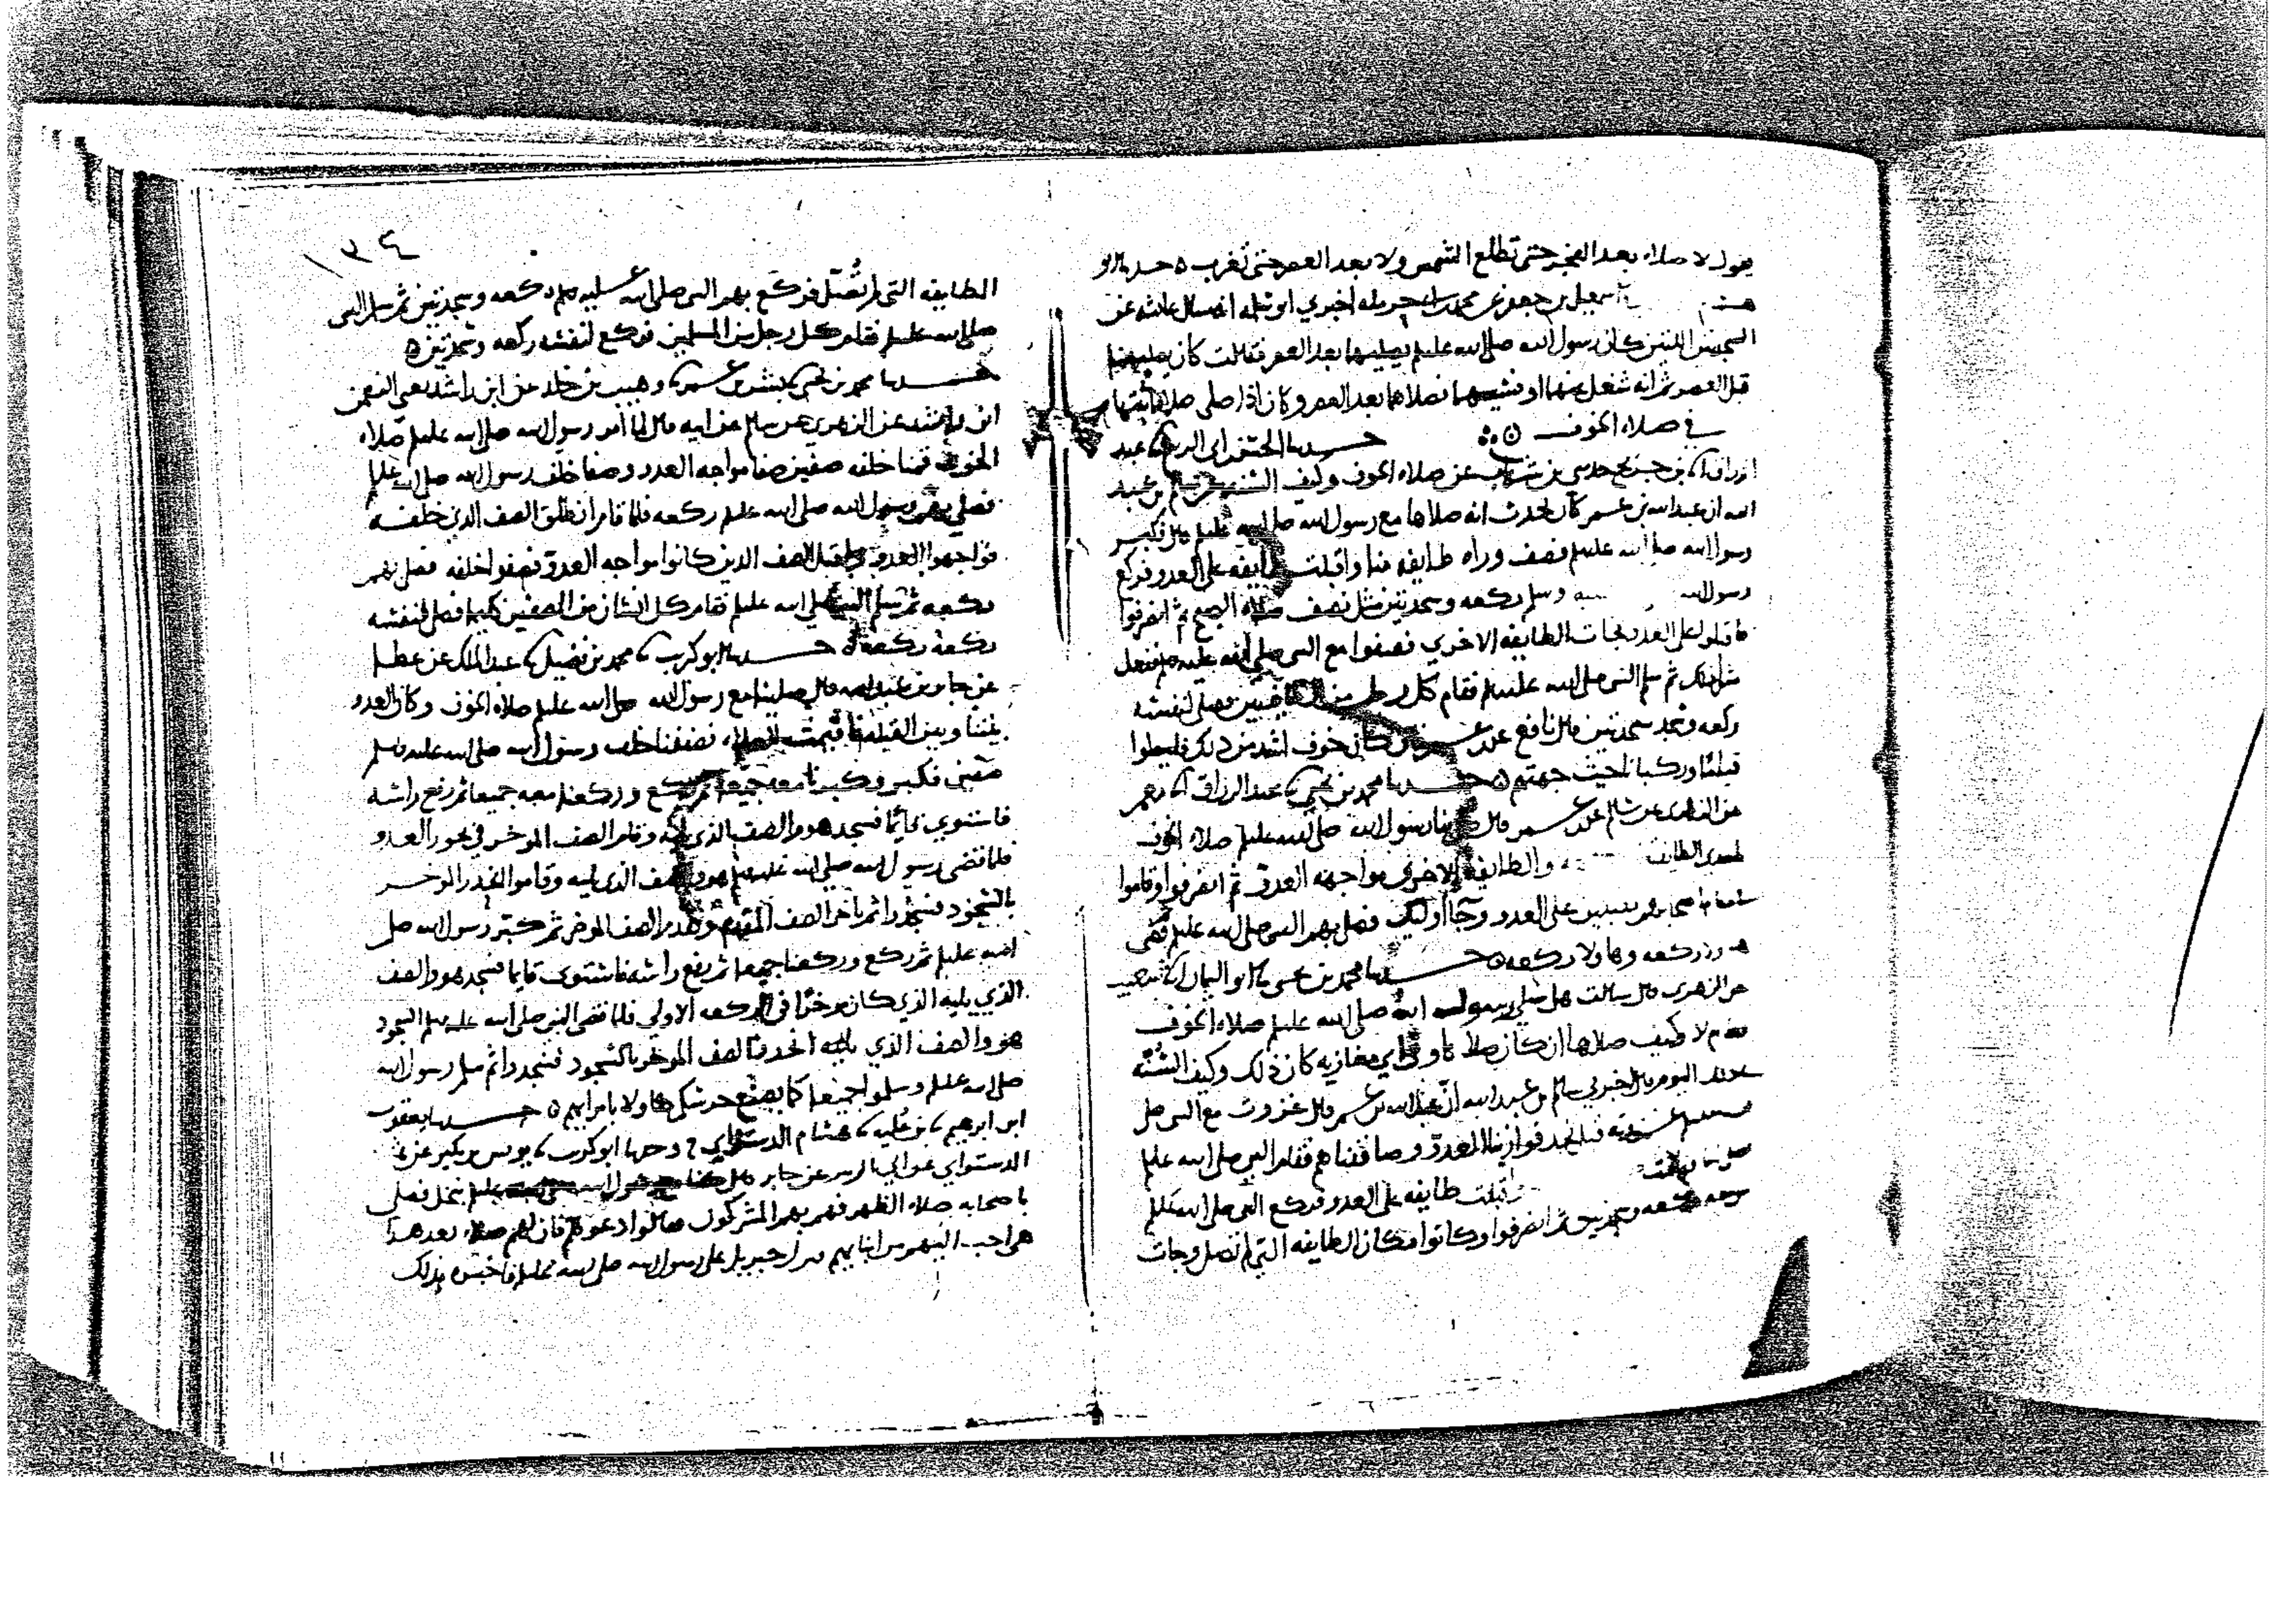 يقول لا صلاه بعد الفجر حتى تطلع الشمس ولا بعد العصر حتى تغرب ٥ حدثنا ابو
اسمعيل بن جعفر عن محمد بن ابي حرمله اخبرني ابو سلمه انه سال عائشه عن
السجدتين اللتين كان رسول الله صلى الله عليه يصليهما بعد العصر فقالت كان يصليهما
قبل العصر ثم انه شغل عنهما او نسيهما فصلاهما بعد العصر وكان اذا صلى صلاه اثبتها
في صلاه الخوف
حدثنا الحسن بن ابي الربيع عبد
الرزاق بن جريج حدثني بن شهاب عن صلاه الخوف وكيف السنه عن سالم بن عبد
الله ان عبد الله بن عمر كان يحدث انه صلاها مع رسول الله صلى الله عليه قال فكبر
رسول الله صلى الله عليه فصف وراه طايفه منا واقبلت طايفه على العدو فركع
رسول الله وسلم ركعه وسجدتين مثل نصف صلاه الصبح ثم انصرفوا
فاقبلوا على العدو فجات الطايفه الاخرى فصفوا مع النبي صلى الله عليه وسلم ففعل
مثل ذلك ثم سلم النبي صلى الله عليه فقام كل رجل من الطايفتين فصلى لنفسه
ركعه وسجد سجدتين قال نافع عن بن عمر فان كان خوف اشد من ذلك فليصلوا
قياما وركبانا حيث جهتهم ٥ حدثنا محمد بن يحيى عبد الرزاق معمر
عن الزهري عن سالم عن بن عمر قال صلى بنا رسول الله صلى الله عليه صلاه الخوف
باحدى الطايف والطايفه الاخرى مواجهه العدو ثم انصرفوا وقاموا
مقام اصحابهم مقبلين على العدو وجا اوليك فصلى بهم النبي صلى الله عليه ثم قضى
ركعه وهاولا ركعه ٥ حدثنا محمد بن يحيى ابو اليمان شعيب
عن الزهري قال سالت هل صلى رسول الله صلى الله عليه صلاه الخوف
ام لا وكيف صلاها ان كان صلاها وفي اي مغازيه كان ذلك وكيف السنه
اليوم قال اخبرني سالم بن عبد الله ان عبد الله بن عمر قال غزوت مع النبي صلى
غزوه قبل نجد فوازينا العدو وصاففناهم فقام النبي صلى الله عليه
اقبلت طايفه على العدو فركع النبي صلى الله عليه
ركعه وسجدتين ثم انصرفوا وكانوا مكان الطايفه التي لم تصل وجات
١٣٤
الطايفه التي لم تصل فركع بهم النبي صلى الله عليه وسلم ركعه وسجدتين ثم سلم النبي
صلى الله عليه فقام كل رجل من المسلمين فركع لنفسه ركعه وسجدتين ٥
حدثنا محمد بن يحيى بشر بن عمر وهيب بن خلد عن ابن راشد يعني النعمن
ابن راشد عن الزهري عن سالم عن ابيه قال لما امر رسول الله صلى الله عليه بصلاه
الخوف قمنا خلفه صفين صفا مواجه العدو وصفا خلف رسول الله صلى الله عليه
فصلى بهم رسول الله صلى الله عليه ركعه فلما قام انطلق الصف الذي خلفه
فواجهوا العدو واقبل الصف الذين كانوا مواجه العدو فصفوا خلفه فصلى بهم
ركعه ثم سلم النبي صلى الله عليه فقام كل انسان من الصفين كليهما فصلى لنفسه
ركعه ركعه ٥ حدثنا ابو كريب محمد بن فضيل عبد الملك عن عطا
عن جابر بن عبد الله قال صلينا مع رسول الله صلى الله عليه صلاه الخوف وكان العدو
بيننا وبين القبله فاقيمت الصلاه فصففنا خلف رسول الله صلى الله عليه وسلم
صفين فكبر وكبرنا معه جميعا ثم ركع وركعنا معه جميعا ثم رفع راسه
فاستوى قائما فسجد هو والصف الذي يليه وقام الصف الموخر في نحور العدو
فلما قضى رسول الله صلى الله عليه هو والصف الذي يليه وقاموا انحدر الموخر
بالسجود فسجدوا ثم تاخر الصف المقدم وتقدم الصف الموخر ثم كبر رسول الله صلى
الله عليه ثم ركع وركعنا جميعا ثم رفع راسه فاستوى قايما فسجد هو والصف
الذي يليه الذي كان موخرا في الركعه الاولى فلما قضى النبي صلى الله عليه وسلم السجود
هو والصف الذي يليه انحدر الصف الموخر بالسجود فسجدوا ثم سلم رسول الله
صلى الله عليه وسلموا جميعا كما يصنع حرسكم هاولا بامرايهم ٥ حدثنا يعقوب
ابن ابرهيم بن عليه هشام الدستواي ح وحدثنا ابو كريب يونس بن بكير عن
الدستواي عن ابي الزبير عن جابر قال كنا مع رسول الله صلى الله عليه بنخل فصلى
باصحابه صلاه الظهر فهم بهم المشركون فقالوا دعوهم فان لهم صلاه بعد هذا
هي احب اليهم من ابنايهم فنزل جبريل على رسول الله صلى الله عليه فاخبره بذلك